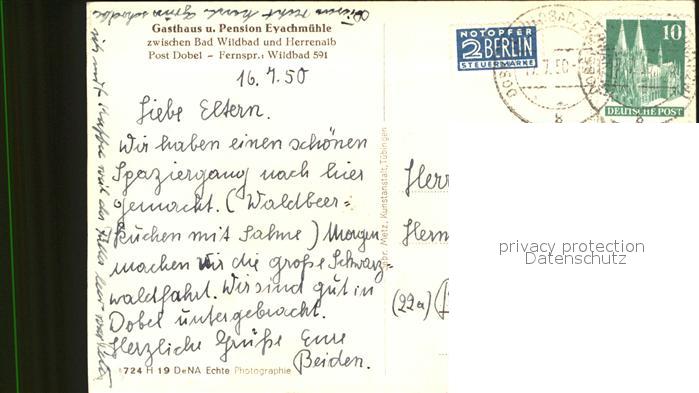 Gasthaus u. Pension Eyachmühle
zwischen Bad Wildbad und Herrenalb
Post Dobel - Fernspr.: Wildbad 591
16.7.50
Liebe Eltern.
Wir haben einen schönen
Spaziergang nach hier
gemacht. (Waldbeer-
kuchen mit Sahne) Morgen
machen wir die große Schwarz-
waldfahrt. Wir sind gut in
Dobel untergebracht.
Herzliche Grüße Eure
Beiden.
724 H 19 DeNA Echte Photographie
Metz, Kunstanstalt, Tübingen
NOTOPFER
2 BERLIN
STEUERMARKE
10
DEUTSCHE POST
Herr
Herm
(22a)
privacy protection
Datenschutz